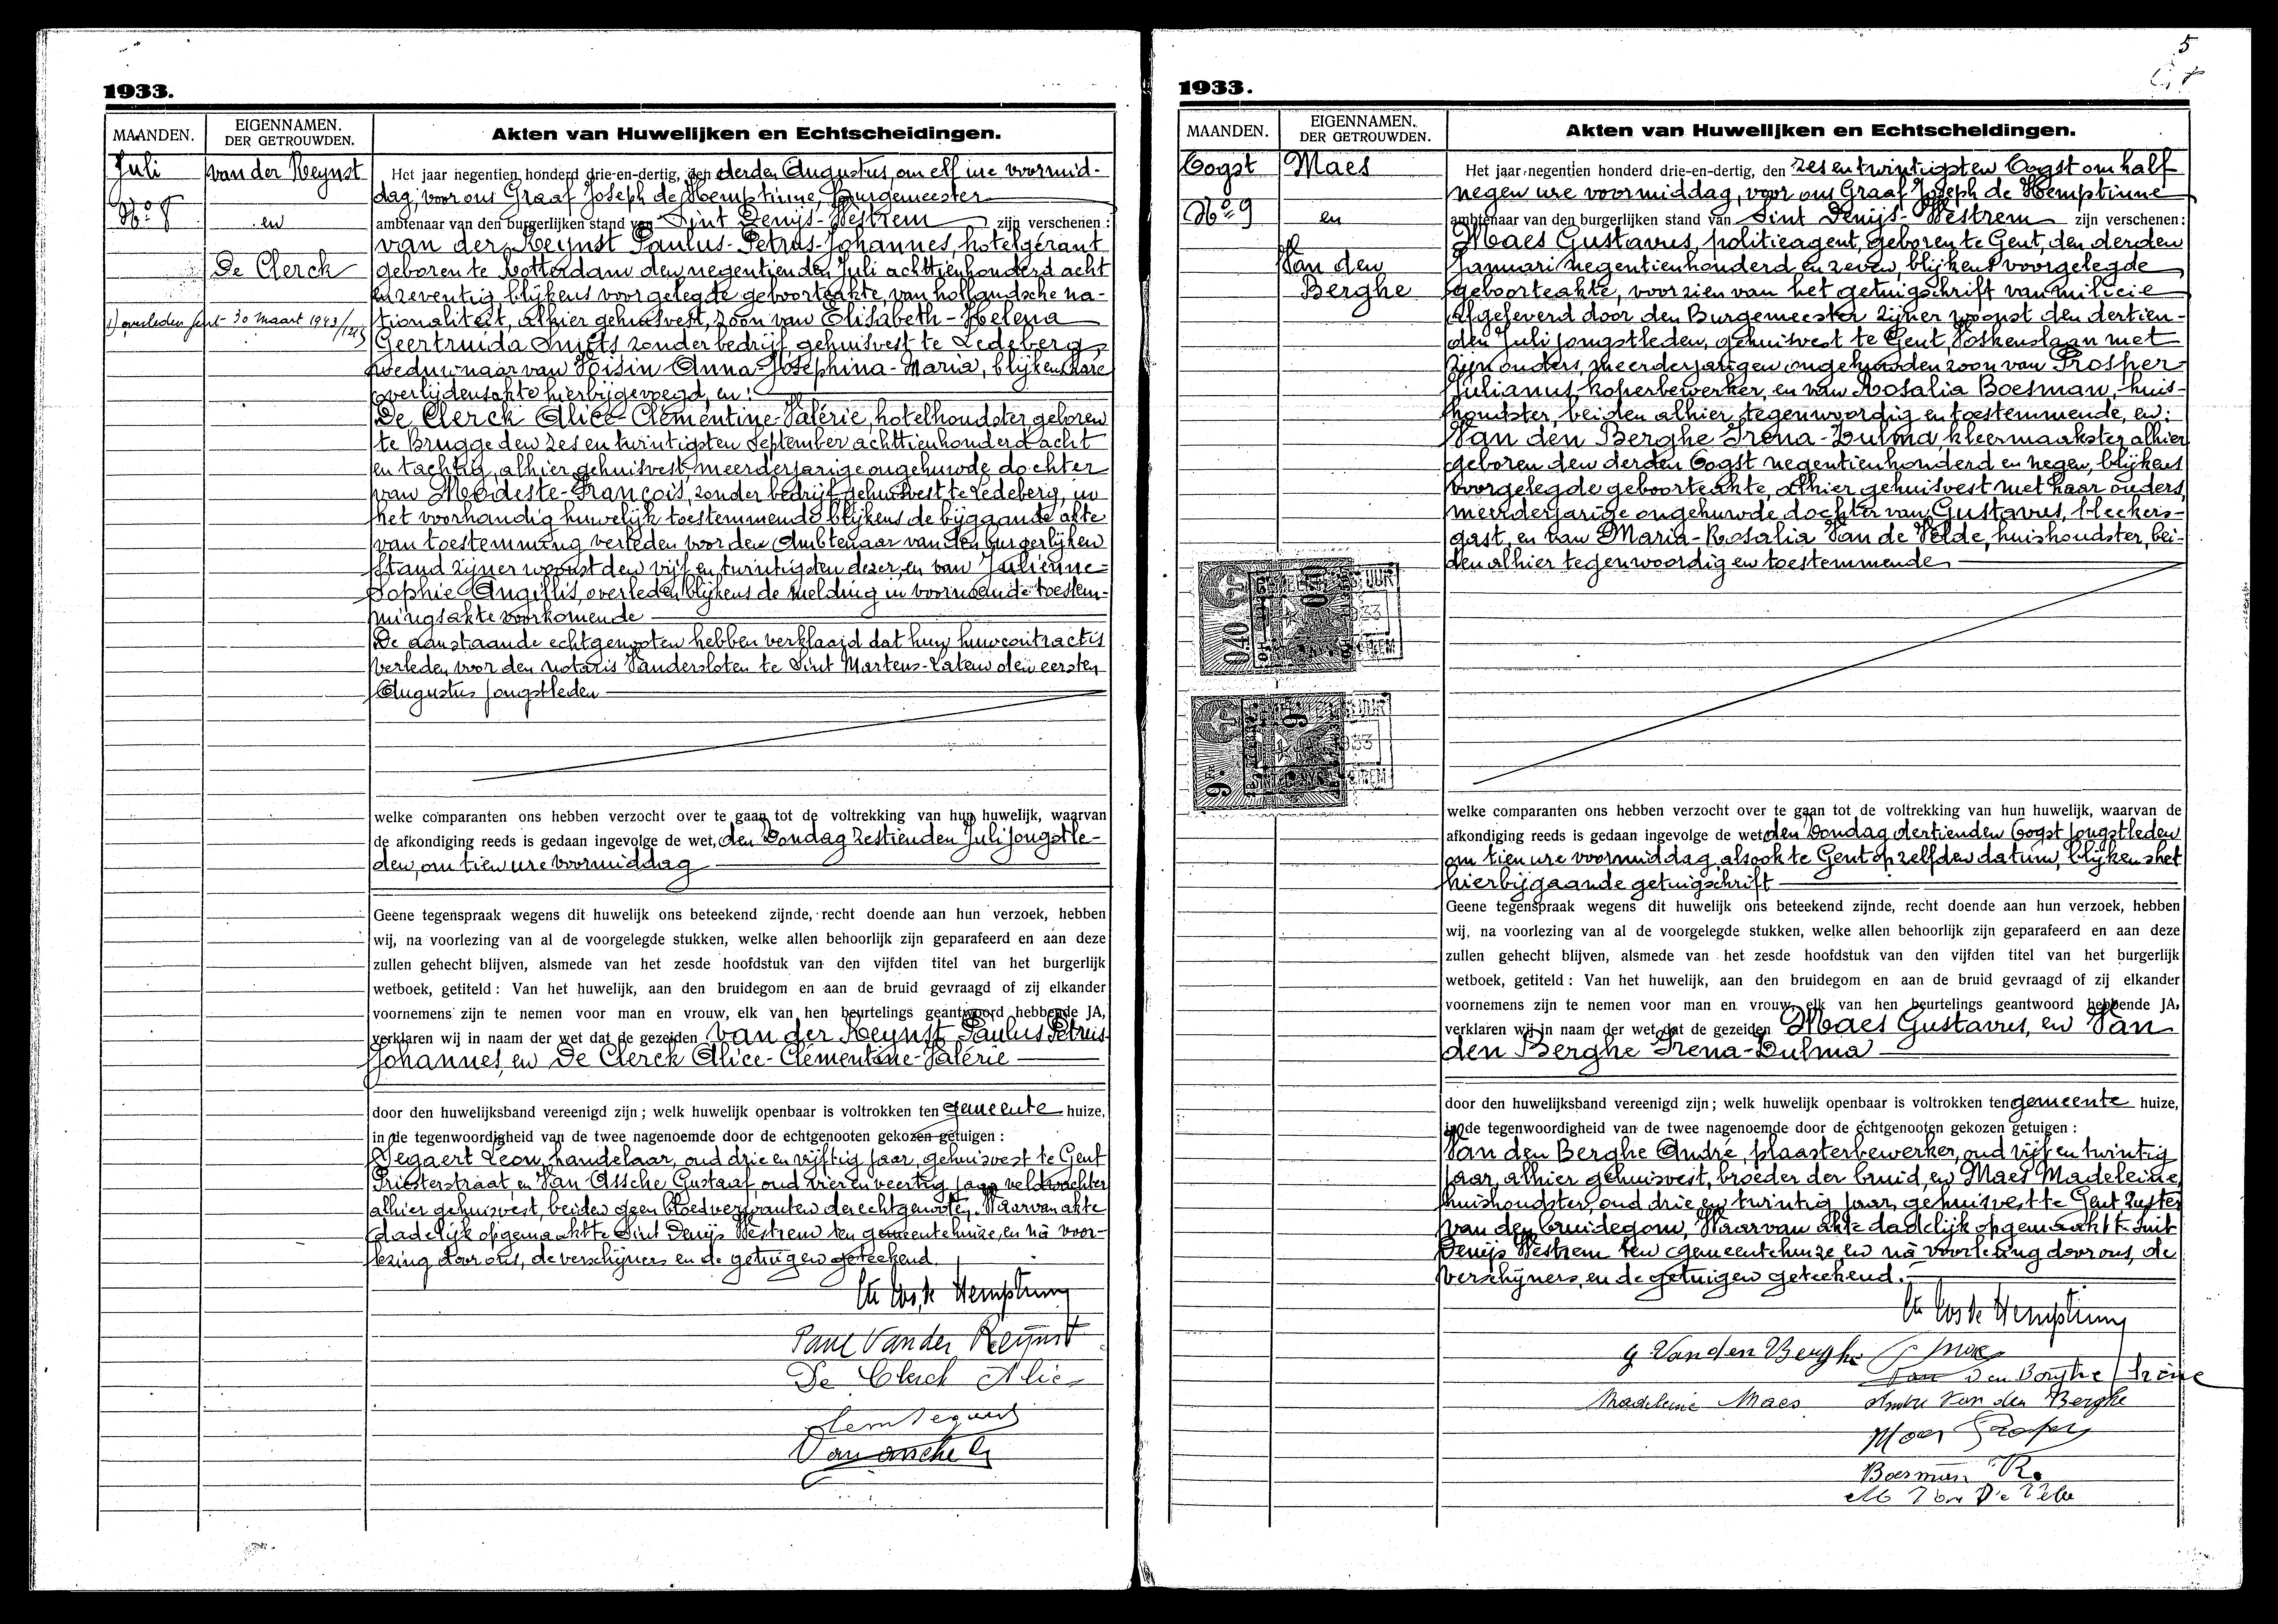 1933.
MAANDEN.
EIGENNAMEN.
DER GETROUWDEN.
Akten van Huwelijken en Echtscheidingen.
Juli
No 8
van der Reynst
en
De Clerck
overleden Gent 30 maart 1943
Het jaar negentien honderd drie-en-dertig, den derden Augustus, om elf ure voormid-
dag, voor ons Graaf Joseph de Hemptinne, Burgemeester
ambtenaar van den burgerlijken stand van Sint Denijs-Westrem zijn verschenen:
van der Reynst Paulus-Petrus-Johannes, hotelgérant
geboren te Rotterdam den negentienden Juli achttienhonderd acht
en zeventig, blijkens voorgelegde geboorteakte, van hollandsche na-
tionaliteit, alhier gehuisvest, zoon van Elisabeth-Helena
Geertruida zonder bedrijf, gehuisvest te Ledeberg,
weduwnaar van Voisin Anna-Josephina-Maria, blijkens hare
overlijdensakte hierbijgevoegd, en:
De Clerck Alice-Clémentine-Valérie, hotelhoudster geboren
te Brugge den zes en twintigsten September achttienhonderd acht
en tachtig, alhier gehuisvest, meerderjarige ongehuwde dochter
van Modeste-François, zonder bedrijf gehuisvest te Ledeberg, in
het voorhandig huwelijk toestemmende blijkens de bijgaande akte
van toestemming verleden voor den Ambtenaar van den burgerlijken
stand zijner woonst den vijf en twintigsten dezer, en van Julienne-
Sophie Angillis, overleden blijkens de melding in voornoemde toestem-
mingsakte voorkomende
De aanstaande echtgenooten hebben verklaard dat hun huwcontract is
verleden voor den notaris Vandersloten te Sint Martens-Latem den eersten
Augustus jongstleden
welke comparanten ons hebben verzocht over te gaan tot de voltrekking van hun huwelijk, waarvan
de afkondiging reeds is gedaan ingevolge de wet, den Zondag zestienden Juli jongstle-
den, om tien ure voormiddag
Geene tegenspraak wegens dit huwelijk ons beteekend zijnde, recht doende aan hun verzoek, hebben
wij, na voorlezing van al de voorgelegde stukken, welke allen behoorlijk zijn geparafeerd en aan deze
zullen gehecht blijven, alsmede van het zesde hoofdstuk van den vijfden titel van het burgerlijk
wetboek, getiteld: Van het huwelijk, aan den bruidegom en aan de bruid gevraagd of zij elkander
voornemens zijn te nemen voor man en vrouw, elk van hen beurtelings geantwoord hebbende JA,
verklaren wij in naam der wet dat de gezeiden van der Reynst Paulus Petrus
Johannes, en De Clerck Alice-Clémentine-Valérie
door den huwelijksband vereenigd zijn; welk huwelijk openbaar is voltrokken ten gemeente huize,
in de tegenwoordigheid van de twee nagenoemde door de echtgenooten gekozen getuigen:
Segaert Leon, handelaar, oud drie en vijftig jaar, gehuisvest te Gent
Priesterstraat, en Van Assche Gustaaf, oud vier en veertig jaar veldwachter
alhier gehuisvest, beiden geen bloedverwanten der echtgenooten. Waarvan akte
dadelijk opgemaakt te Sint Denijs Westrem ten gemeentehuize, en nà voor-
lezing door ons, de verschijners en de getuigen geteekend.
Cte Jos. de Hemptinne
Paul Van der Reynst
De Clerck Alice
Vanassche G
5
1933.
MAANDEN.
EIGENNAMEN.
DER GETROUWDEN.
Akten van Huwelijken en Echtscheidingen.
Oogst
No 9
Maes
en
Van den
Berghe
Het jaar negentien honderd drie-en-dertig, den zes en twintigsten Oogst om half
negen ure voormiddag, voor ons Graaf Joseph de Hemptinne
ambtenaar van den burgerlijken stand van Sint Denijs-Westrem zijn verschenen:
Maes Gustavus, politieagent, geboren te Gent, den derden
Januari negentienhonderd en zeven, blijkens voorgelegde
geboorteakte, voorzien van het getuigschrift van milicie
afgeleverd door den Burgemeester zijner woonst den dertien-
den Juli jongstleden, gehuisvest te Gent, Voskenslaan met
zijn ouders, meerderjarigen ongehuwden zoon van Prosper
Julianus, koperbewerker, en van Rosalia Boesman, huis-
houdster, beiden alhier tegenwoordig en toestemmende, en:
Van den Berghe Irena-Zulma, kleermaakster alhier
geboren den derden Oogst negentienhonderd en negen, blijkens
voorgelegde geboorteakte, alhier gehuisvest met haar ouders,
meerderjarige ongehuwde dochter van Gustavus, bleekers-
gast, en van Maria-Rosalia Van de Velde, huishoudster, bei-
den alhier tegenwoordig en toestemmende
welke comparanten ons hebben verzocht over te gaan tot de voltrekking van hun huwelijk, waarvan de
afkondiging reeds is gedaan ingevolge de wet den Zondag dertienden Oogst jongstleden
om tien ure voormiddag, alsook te Gent op zelfden datum, blijkens het
hierbijgaande getuigschrift
Geene tegenspraak wegens dit huwelijk ons beteekend zijnde, recht doende aan hun verzoek, hebben
wij, na voorlezing van al de voorgelegde stukken, welke allen behoorlijk zijn geparafeerd en aan deze
zullen gehecht blijven, alsmede van het zesde hoofdstuk van den vijfden titel van het burgerlijk
wetboek, getiteld: Van het huwelijk, aan den bruidegom en aan de bruid gevraagd of zij elkander
voornemens zijn te nemen voor man en vrouw, elk van hen beurtelings geantwoord hebbende JA,
verklaren wij in naam der wet dat de gezeiden Maes Gustavus, en Van
den Berghe Irena-Zulma
door den huwelijksband vereenigd zijn; welk huwelijk openbaar is voltrokken ten gemeente huize,
in de tegenwoordigheid van de twee nagenoemde door de echtgenooten gekozen getuigen:
Van den Berghe André, plaasterbewerker, oud vijf en twintig
jaar, alhier gehuisvest, broeder der bruid, en Maes Madeleine,
huishoudster, oud drie en twintig jaar, gehuisvest te Gent, zuster
van den bruidegom, Waarvan akte dadelijk opgemaakt te Sint
Denijs Westrem ten gemeentehuize en nà voorlezing door ons, de
verschijners, en de getuigen geteekend.
Cte Jos de Hemptinne
G Van den Berghe G Maes
Van Den Berghe Irène
Madeleine Maes André Van den Berghe
Maes Prosper
Boesman R.
M Van De Velde